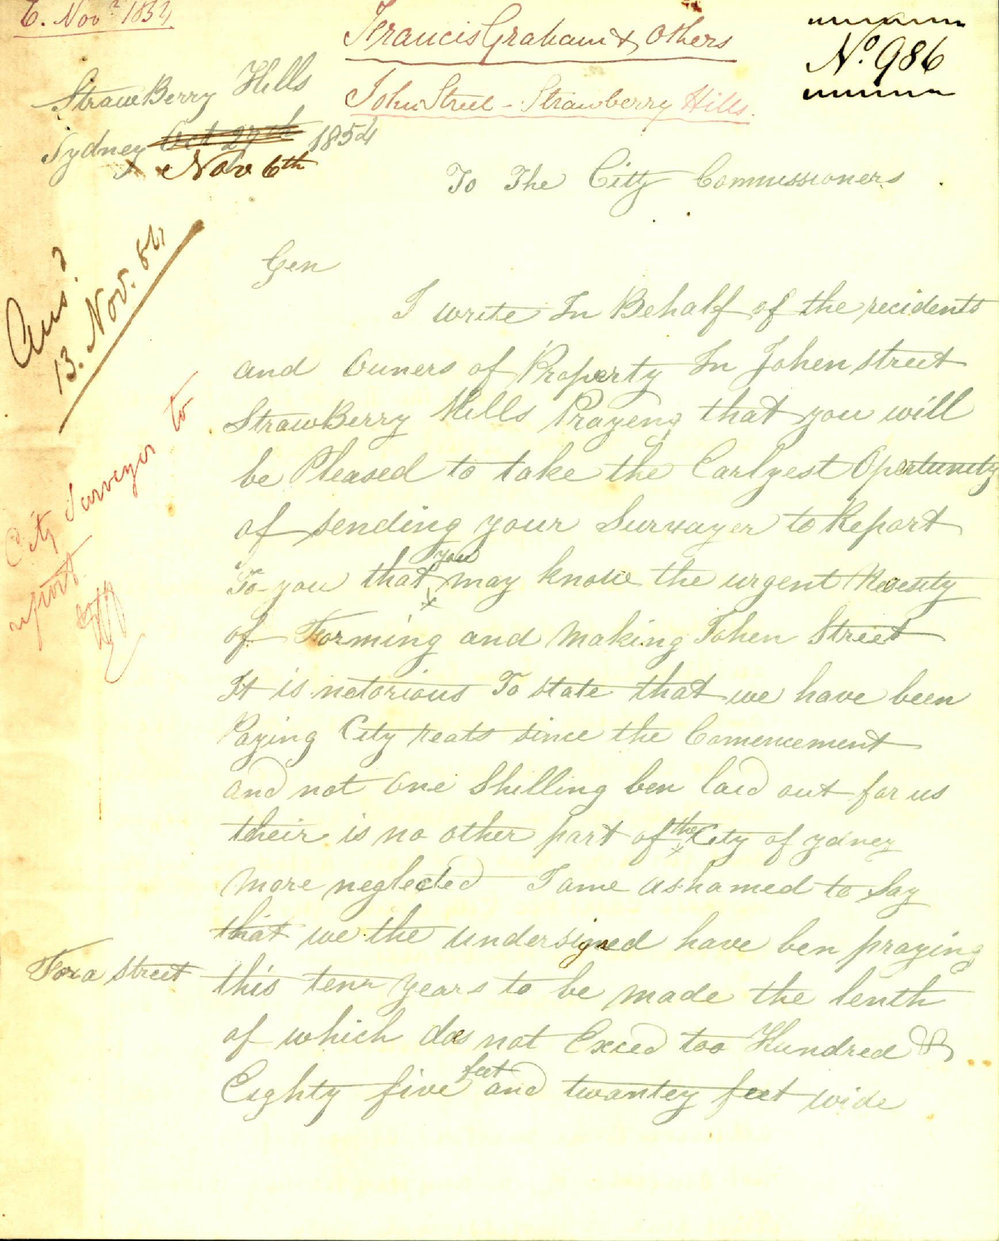 6. Novr. 1854
Francis Graham & Others
John Street - Strawberry Hills.
No. 986
StrawBerry Hills
Sydney Oct 27th 1854
Nov 6th
To The City Commissioners
Ansd.
13. Nov. 54
City Surveyor to
report
Gen
I write In Behalf of the recidents
and Owners of Property In Johen street
StrawBerry Hills Prayeng that you will
be Pleased to take the Earlyest Opertunity
of sending your Survayer to Report
To you that you may know the urgent Necesity
of Forming and Making Johen Street
It is notorious To state that we have been
Paying City reats since the Comencement
and not one Shilling ben laid out for us
their is no other part of the City of ydney
More neglected I ame ashamed to Say
that we the undersigned have ben praying
For a street this tenn years to be made the lenth
of which does not Exced too Hundred &
Eighty five feet and twantey feet wide